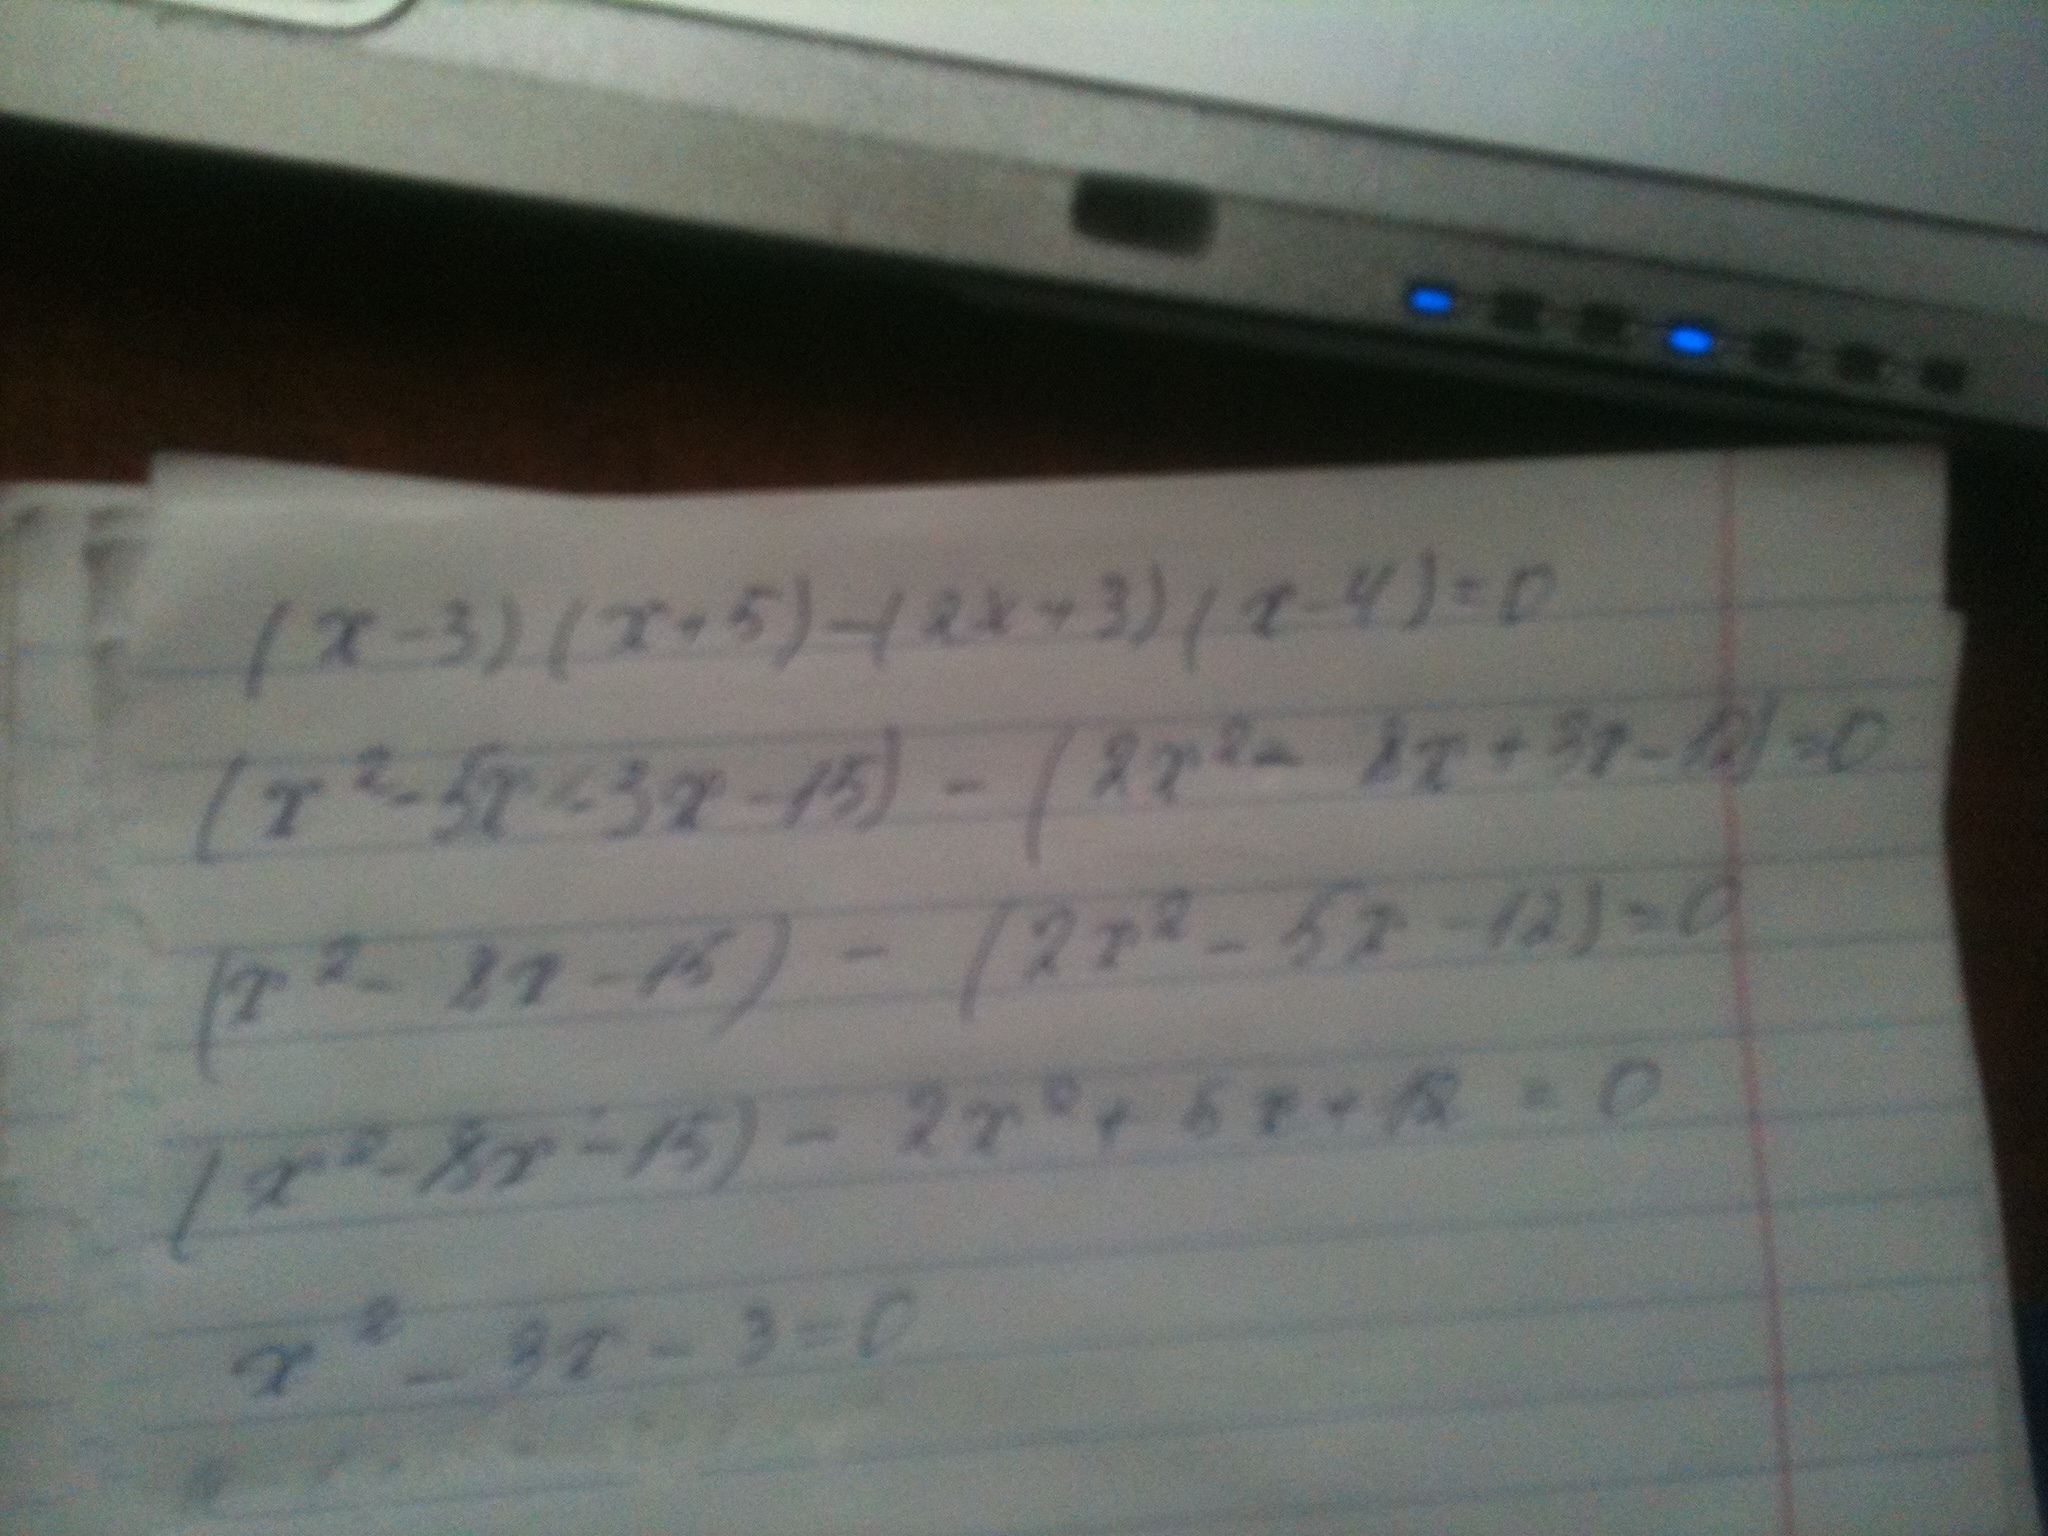 (x-3)(x+5)-(2x+3)(x-4)=0
(x²-5x-3x-15) - (2x²- 8x+3x-12)=0
(x²- 8x-15) - (2x²-5x-12)=0
(x²-8x-15) - 2x²+5x+12 = 0
x² - 3x - 3=0